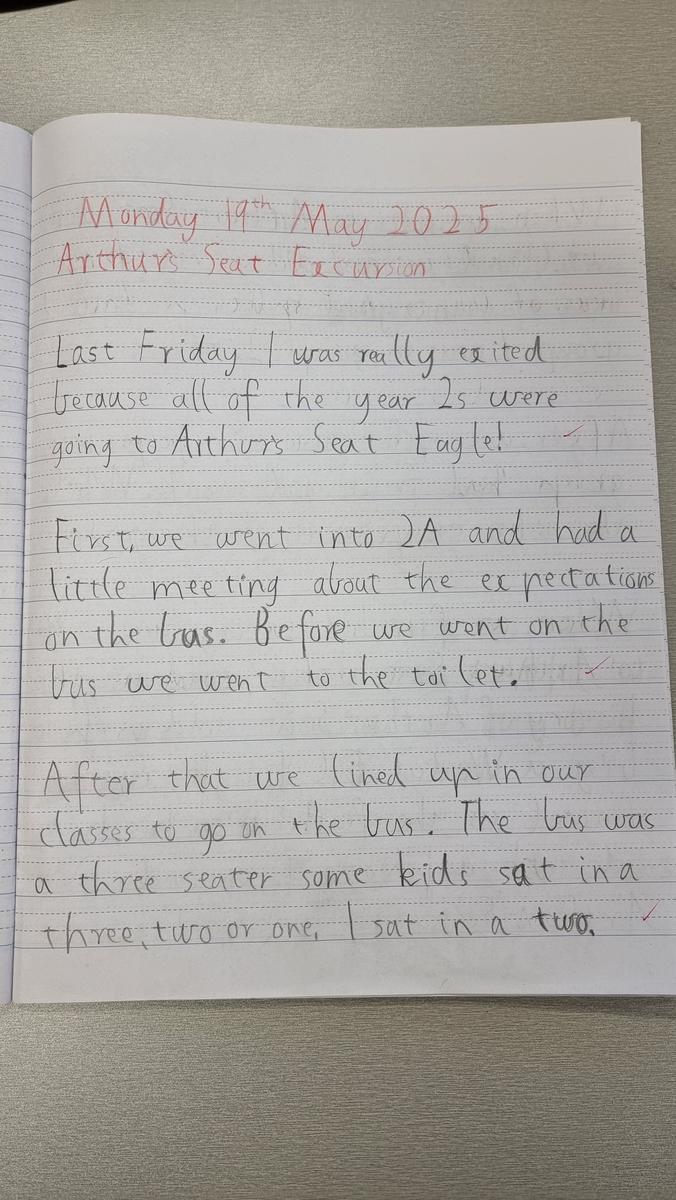 Monday 19th May 2025
Arthur's Seat Excursion
Last Friday I was really exited
because all of the year 2s were
going to Arthur's Seat Eagle!
First, we went into 2A and had a
little meeting about the expectations
on the bus. Before we went on the
bus we went to the toilet.
After that we lined up in our
classes to go on the bus. The bus was
a three seater some kids sat in a
three, two or one, I sat in a two.